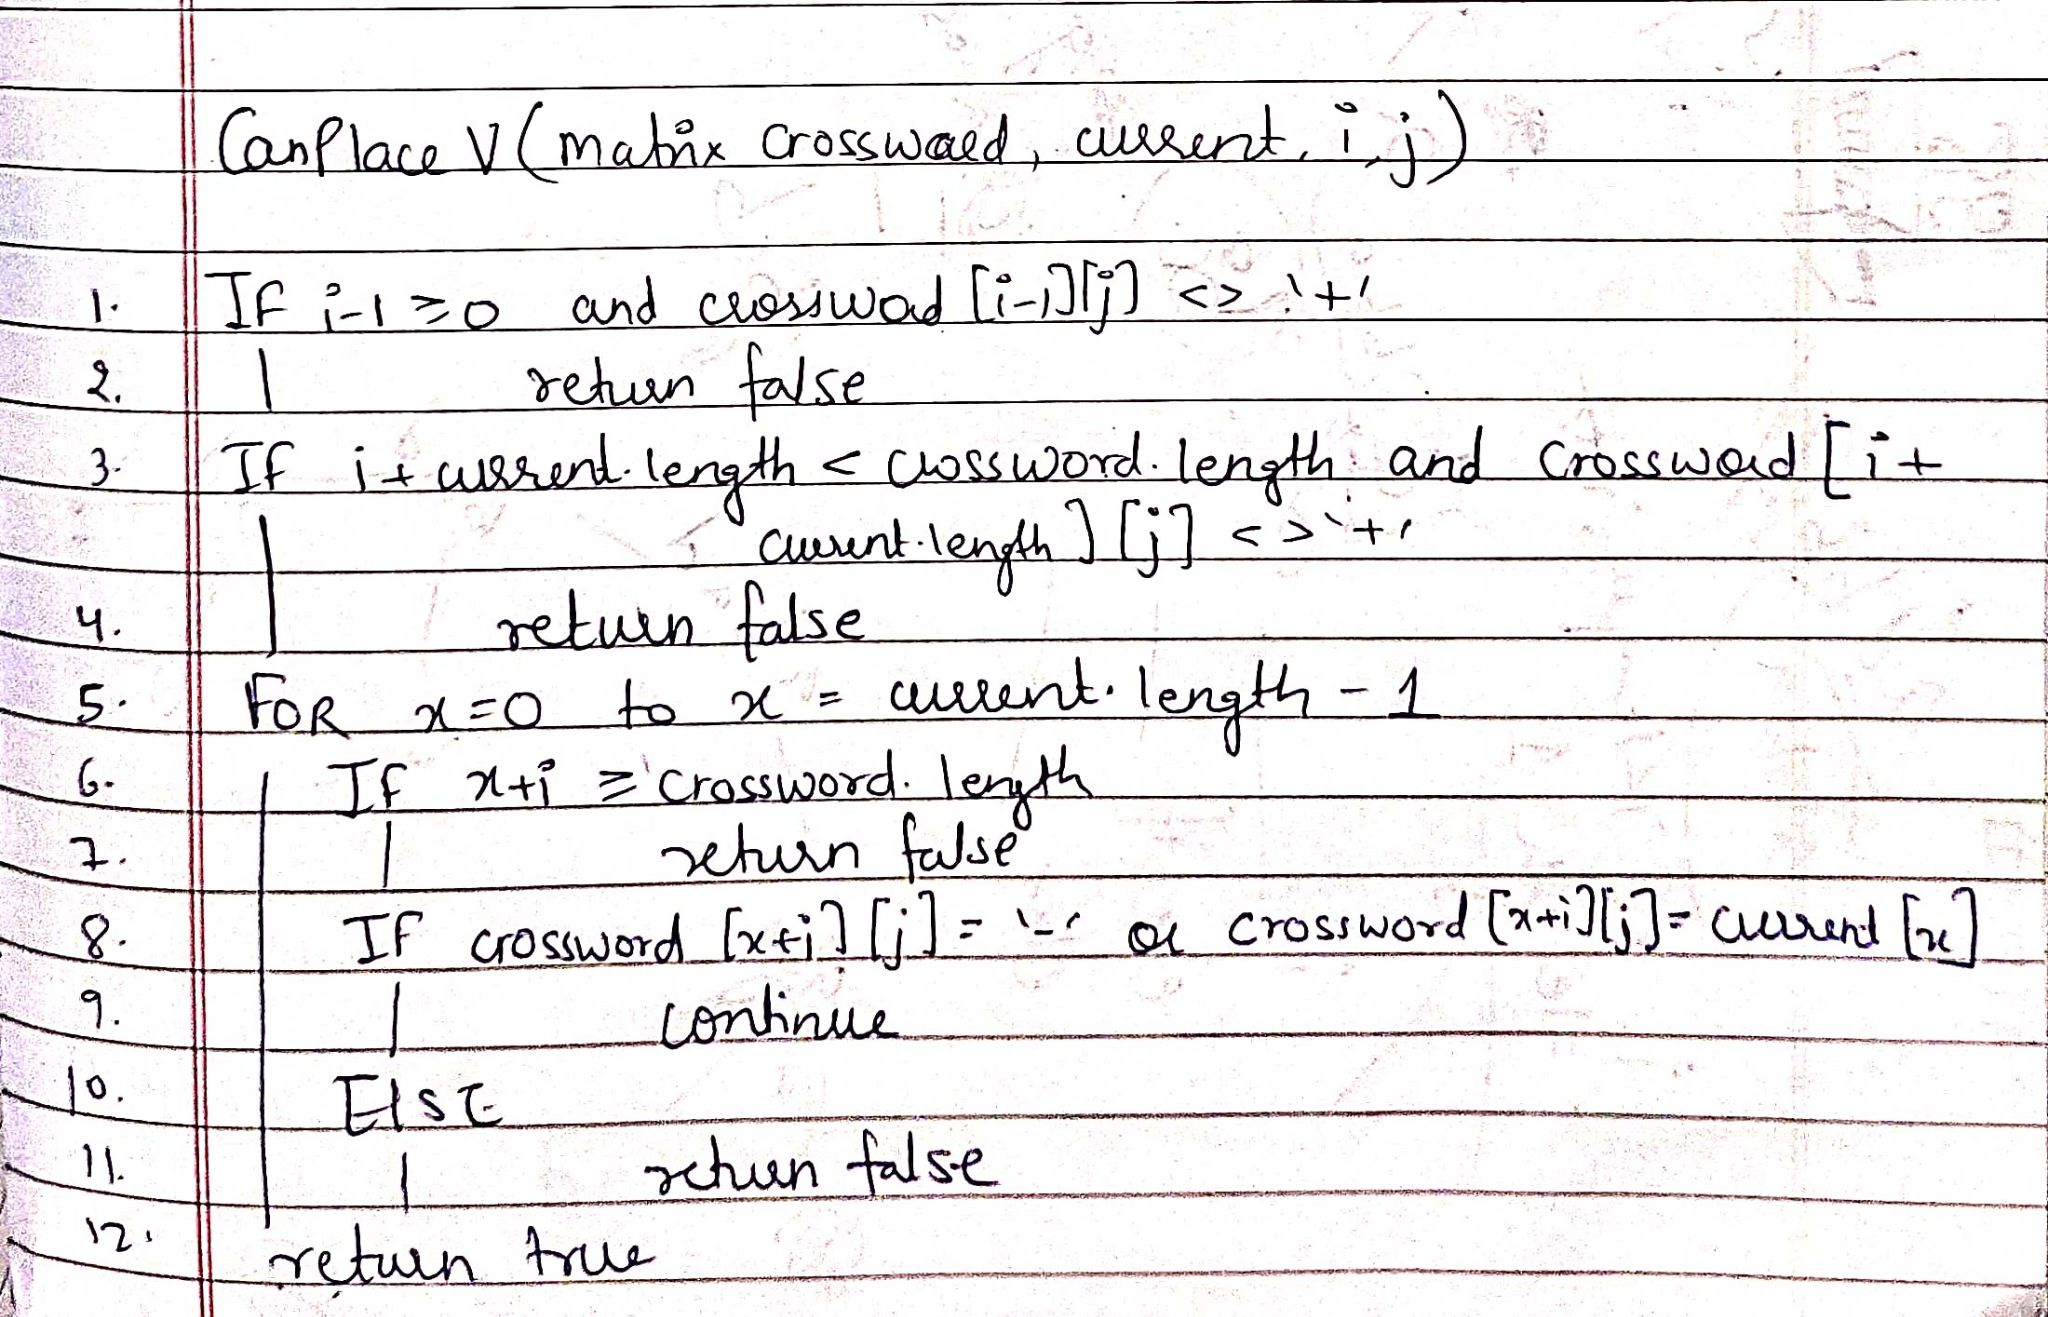 CanPlace V (matrix crossword, current, i, j)
1. If i-1 ≥ 0 and crossword [i-1][j] <> '+'
2. return false
3. If i + current.length < crossword.length and crossword [i+
current.length] [j] <> '+'
4. return false
5. FOR x=0 to x = current.length - 1
6. If x+i ≥ crossword.length
7. return false
8. If crossword [x+i] [j] = '-' or crossword [x+i][j] = current [x]
9. continue
10. Else
11. return false
12. return true